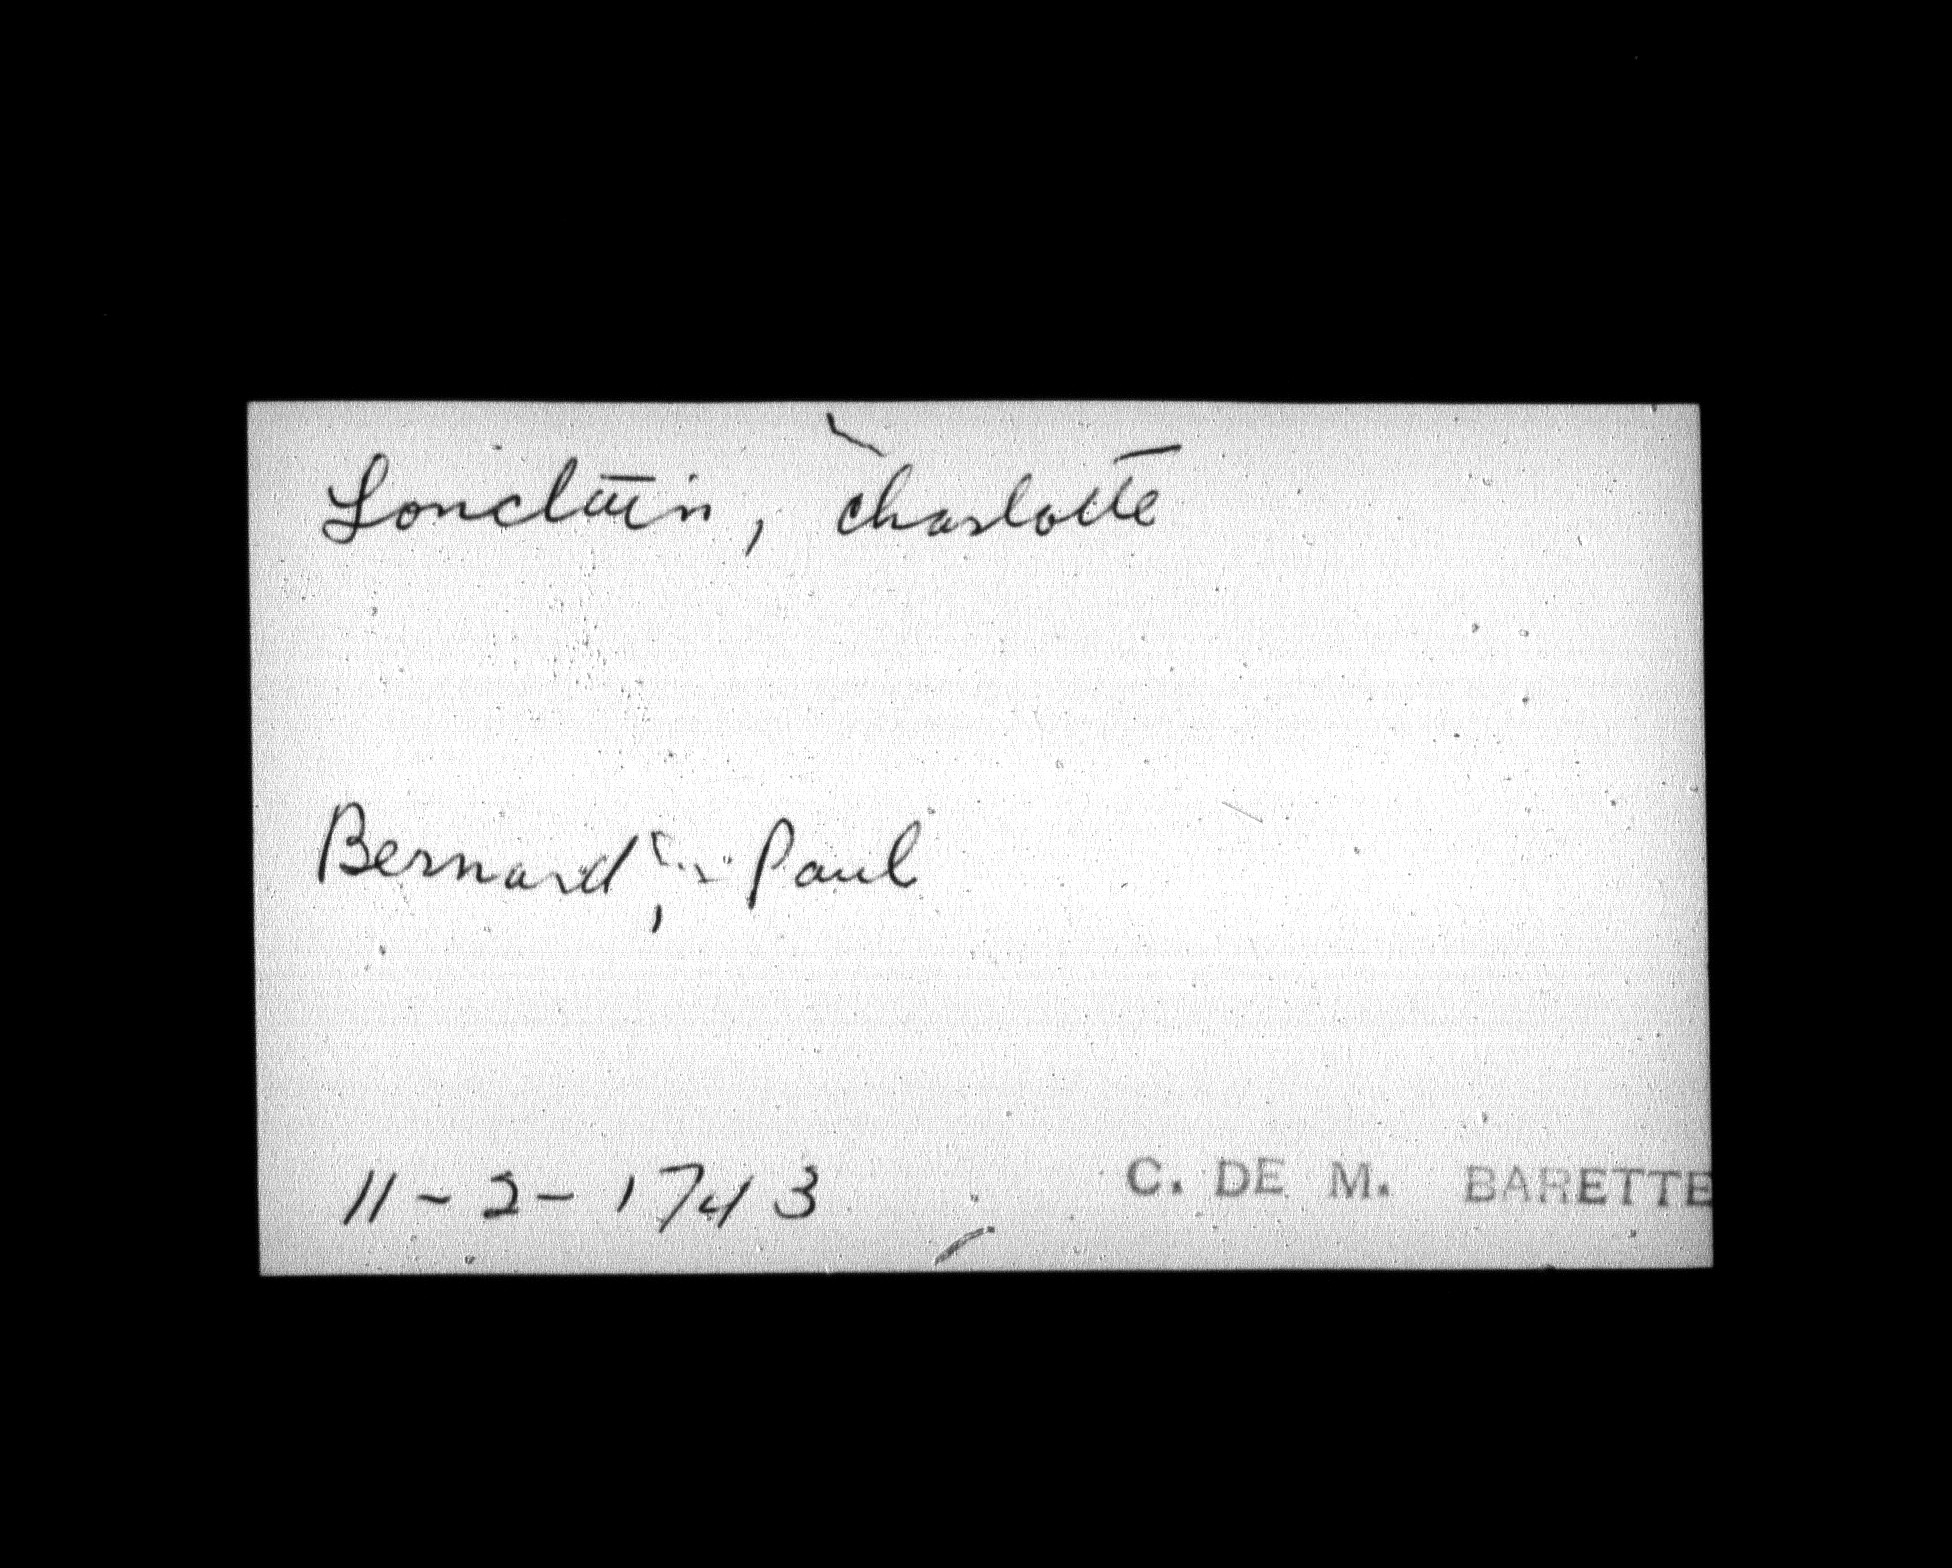 Charlotte
Bernard, Paul
11-2-1743 C. DE M. BARETTE